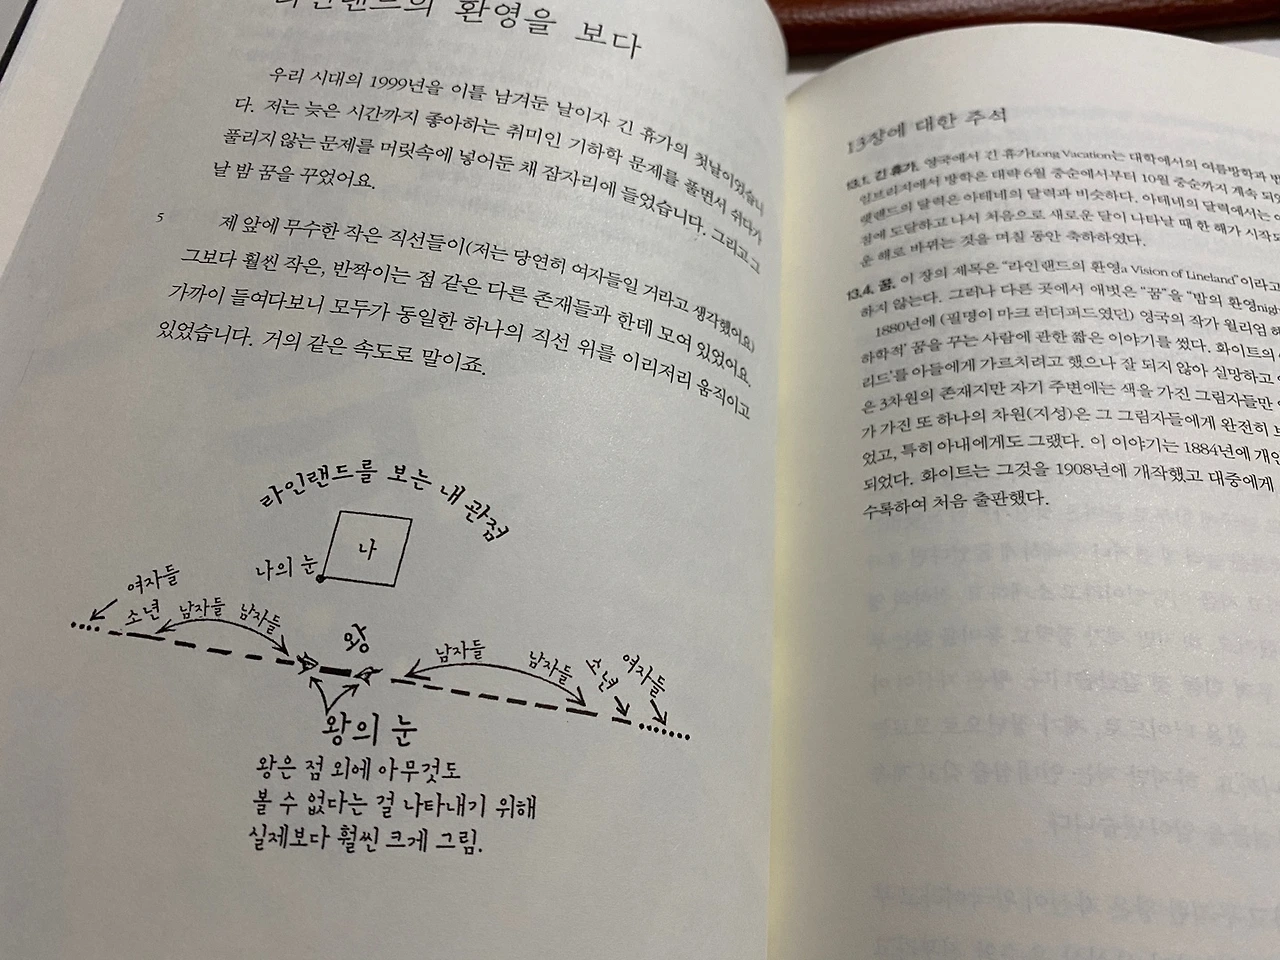 라인랜드의 환영을 보다
우리 시대의 1999년을 이틀 남겨둔 날이자 긴 휴가의 첫날이었습니
다. 저는 늦은 시간까지 좋아하는 취미인 기하학 문제를 풀면서 쉬다가
풀리지 않는 문제를 머릿속에 넣어둔 채 잠자리에 들었습니다. 그리고 그
날 밤 꿈을 꾸었어요.
5 제 앞에 무수한 작은 직선들이(저는 당연히 여자들일 거라고 생각했어요)
그보다 훨씬 작은, 반짝이는 점 같은 다른 존재들과 한데 모여 있었어요.
가까이 들여다보니 모두가 동일한 하나의 직선 위를 이리저리 움직이고
있었습니다. 거의 같은 속도로 말이죠.
라인랜드를 보는 내 관점
나
나의 눈
여자들
소년 남자들 남자들
왕
남자들 남자들 소년 여자들
왕의 눈
왕은 점 외에 아무것도
볼 수 없다는 걸 나타내기 위해
실제보다 훨씬 크게 그림.
13장에 대한 주석
13.1. 긴 휴가. 영국에서 긴 휴가Long Vacation는 대학에서의 여름방학과
임브리지에서 방학은 대략 6월 중순에서부터 10월 중순까지 계속
랫랜드의 달력은 아테네의 달력과 비슷하다. 아테네의 달력에서는
점에 도달하고 나서 처음으로 새로운 달이 나타날 때 한 해가
운 해로 바뀌는 것을 며칠 동안 축하하였다.
13.4. 꿈. 이 장의 제목은 “라인랜드의 환영a Vision of Lineland”이라고
하지 않는다. 그러나 다른 곳에서 애벗은 “꿈”을 “밤의
1880년에 (필명이 마크 러더퍼드였던) 영국의 작가 윌리엄
하학적’ 꿈을 꾸는 사람에 관한 짧은 이야기를 썼다. 화이트의
리드’를 아들에게 가르치려고 했으나 잘 되지 않아 실망하고
은 3차원의 존재지만 자기 주변에는 색을 가진 그림자들만
가 가진 또 하나의 차원(지성)은 그 그림자들에게 완전히
었고, 특히 아내에게도 그랬다. 이 이야기는 1884년에
되었다. 화이트는 그것을 1908년에 개작했고 대중에게
수록하여 처음 출판했다.